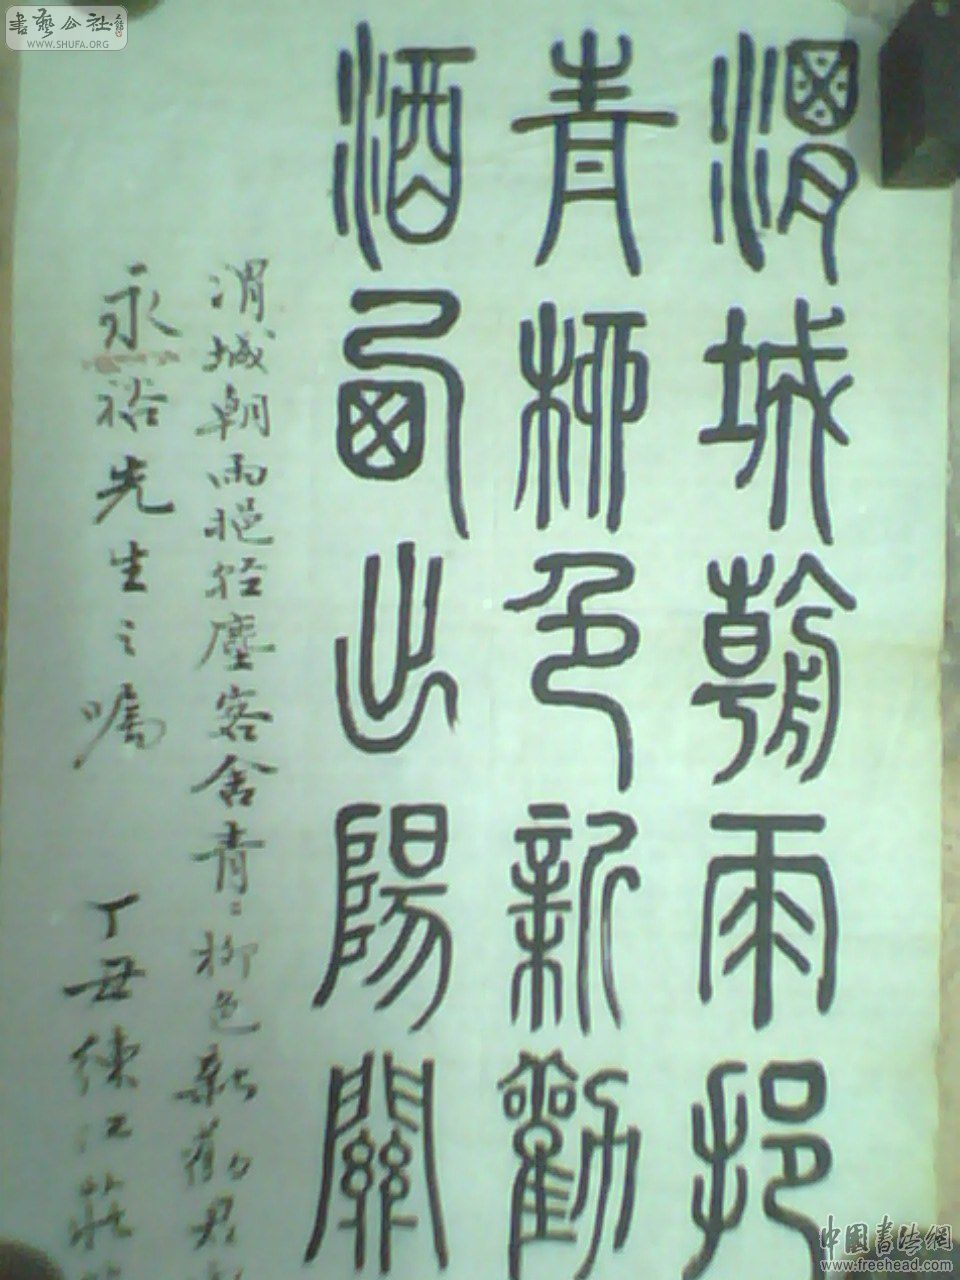 渭城朝雨挹
青柳色新勸
酒西出陽關
渭城朝雨挹轻塵客舍青〻柳色新勸君
永裕先生之嘱
丁丑練江莊
書藝公社
WWW.SHUFA.ORG
中國書法網
www.freehead.com